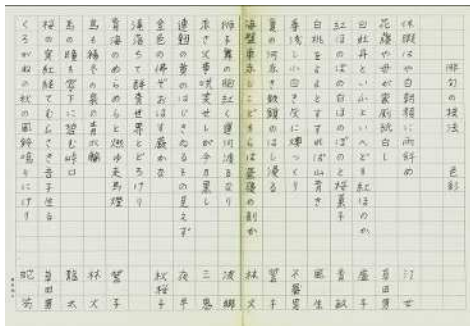 俳句の技法　色彩
休暇はや白朝顔に雨斜め　汀女
花藤や母が家厠紙白し　草田男
白牡丹といふといへども紅ほのか　虚子
紅ほのぼの白ほのぼのと桜菓子　青畝
白桃をよよとすすれば山青き　風生
春浅し小白き灰に燻つくり　不器男
夏の河赤き鉄鎖のはし浸る　誓子
海盤車赤しこどもらは昼寝の刻か　林火
獅子舞の胴紅く運河渡るなり　波郷
赤き火事哄笑せしが今日黒し　三鬼
連翹の黄のはじきゐるもの見えず　夜半
金色の仏ぞおはす蕨かな
滝落ちて群青世界とどろけり　秋桜子
青海のめらめらと燃ゆ走馬燈　誓子
鳥も稀の冬の泉の青水輪　林火
鳥の瞳も雪下に碧む峠口　龍太
桜の実紅経てむらさき吾子生る　草田男
くろがねの秋の風鈴鳴りにけり　蛇笏